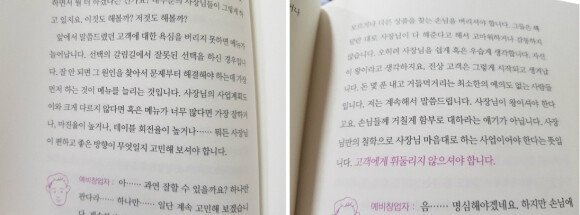 고 있지요. 이것도 해볼까? 저것도 해볼까?
앞에서 말씀드렸던 고객에 대한 욕심을 버리지 못하면 메뉴가
늘어납니다. 선택의 갈림길에서 잘못된 선택을 하신 경우입니
다. 잘 안 되면 그 원인을 찾아서 문제부터 해결해야 하는데 가장
먼저 하는 것이 메뉴를 늘리는 것입니다. 사장님의 사업계획도
이와 크게 다르지 않다면 혹은 메뉴가 너무 많다면 가장 잘하거
나, 마진율이 높거나, 테이블 회전율이 높거나…… 뭐든 사장님
이 편하고 좋은 방향이 무엇일지 고민해 보셔야 합니다.
예비창업자 : 아…… 과연 잘할 수 있을까요? 하나만
한다라…… 하나만…… 일단 계속 고민해 보겠습니
모르거나 다른 상품을 찾는 손님을 버리셔야 합니다. 그들은 해
달란 대로 사장님이 다 해준다고 해서 고마워하거나 감동하지
않습니다. 오히려 사장님을 쉽게 혹은 우습게 생각합니다. 자신
이 왕이라고 생각하지요. 진상 고객은 그렇게 시작되고 생겨납
니다. 돈 몇 푼 내고 거들먹거리는 최소한의 예의도 없는 사람들
입니다. 저는 계속해서 말씀드립니다. 사장님이 왕이셔야 한다
고요. 손님들께 거칠게 함부로 대하라는 얘기가 아닙니다. 사장
님만의 철학으로 사장님 마음대로 하는 사업이어야 한다는 뜻입
니다. 고객에게 휘둘리지 않으셔야 합니다.
예비창업자 : 음…… 명심해야겠네요. 하지만 손님에